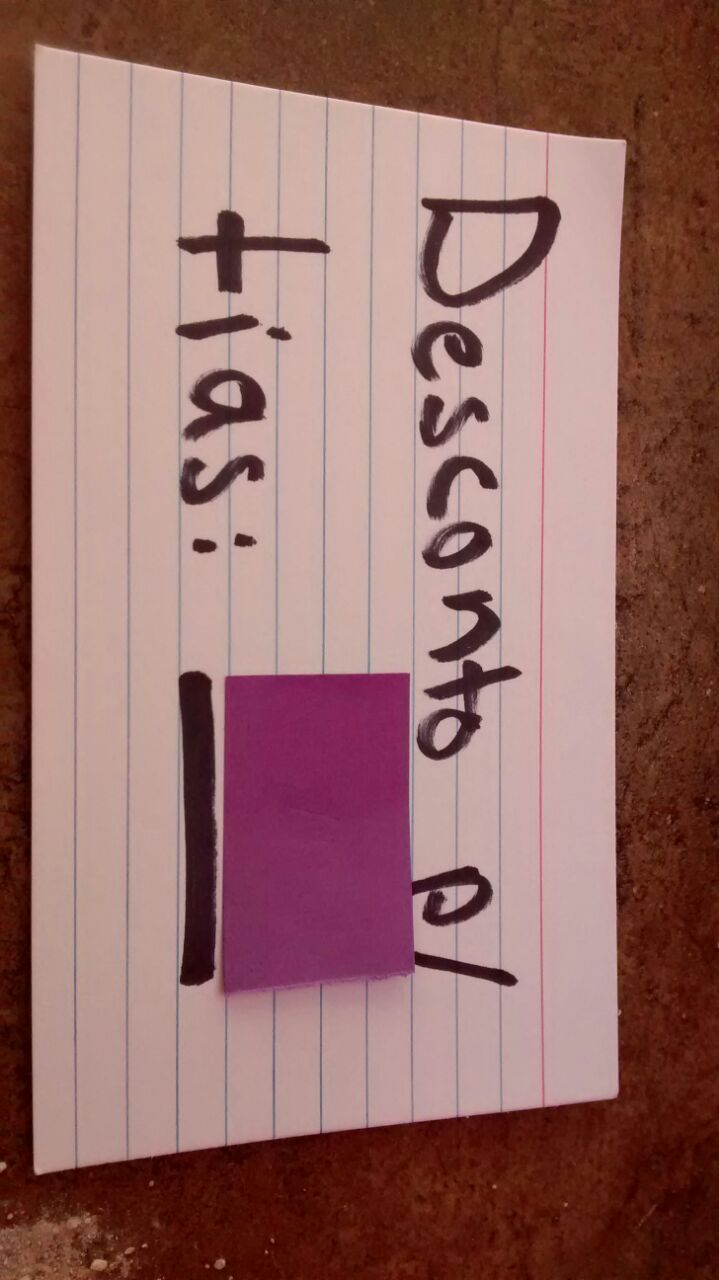 Desconto p/
tias: